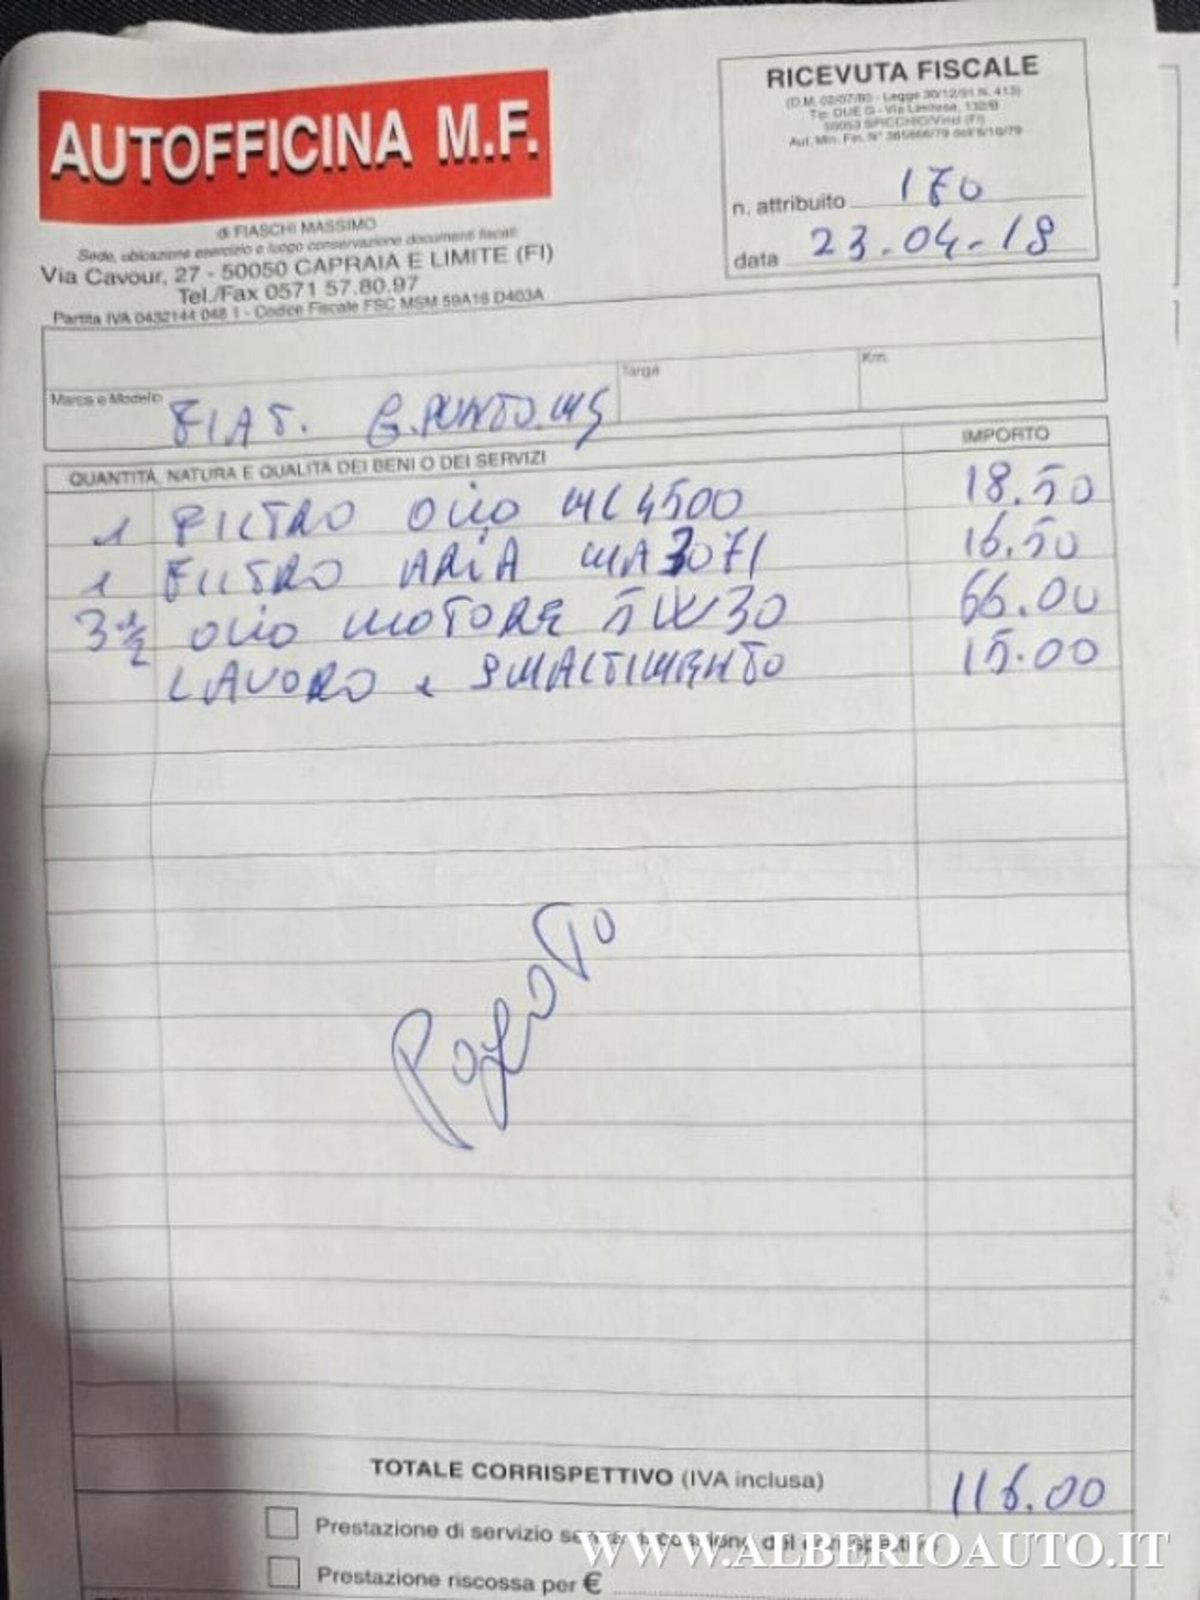 AUTOFFICINA M.F.
di FIASCHI MASSIMO
Sede, ubicazione esercizio e luogo conservazione documenti fiscali
Via Cavour, 27 - 50050 CAPRAIA E LIMITE (FI)
Tel./Fax 0571 57.80.97
Partita IVA 0432144 048 1 - Codice Fiscale FSC MSM 59A16 D403A
RICEVUTA FISCALE
(D.M. 02/07/80 - Legge 30/12/91 N. 413)
Tip. DUE G - Via Limitese, 132/B
50053 SPICCHIO/Vinci (FI)
Aut. Min. Fin. N° 365666/79 dell'8/10/79
n. attribuito 170
data 23.04.18
Marca e Modello FIAT. G.PUNTO.
Targa
Km.
QUANTITÀ, NATURA E QUALITÀ DEI BENI O DEI SERVIZI IMPORTO
1 FILTRO OLIO ML4500 18.50
1 FILTRO ARIA MA3071 16.50
3 1/2 OLIO MOTORE 5W30 66.00
LAVORO e SMALTIMENTO 15.00
PAGATO
TOTALE CORRISPETTIVO (IVA inclusa) 116.00
Prestazione di servizio senza riscossione del corrispettivo
Prestazione riscossa per €
WWW.ALBERIOAUTO.IT